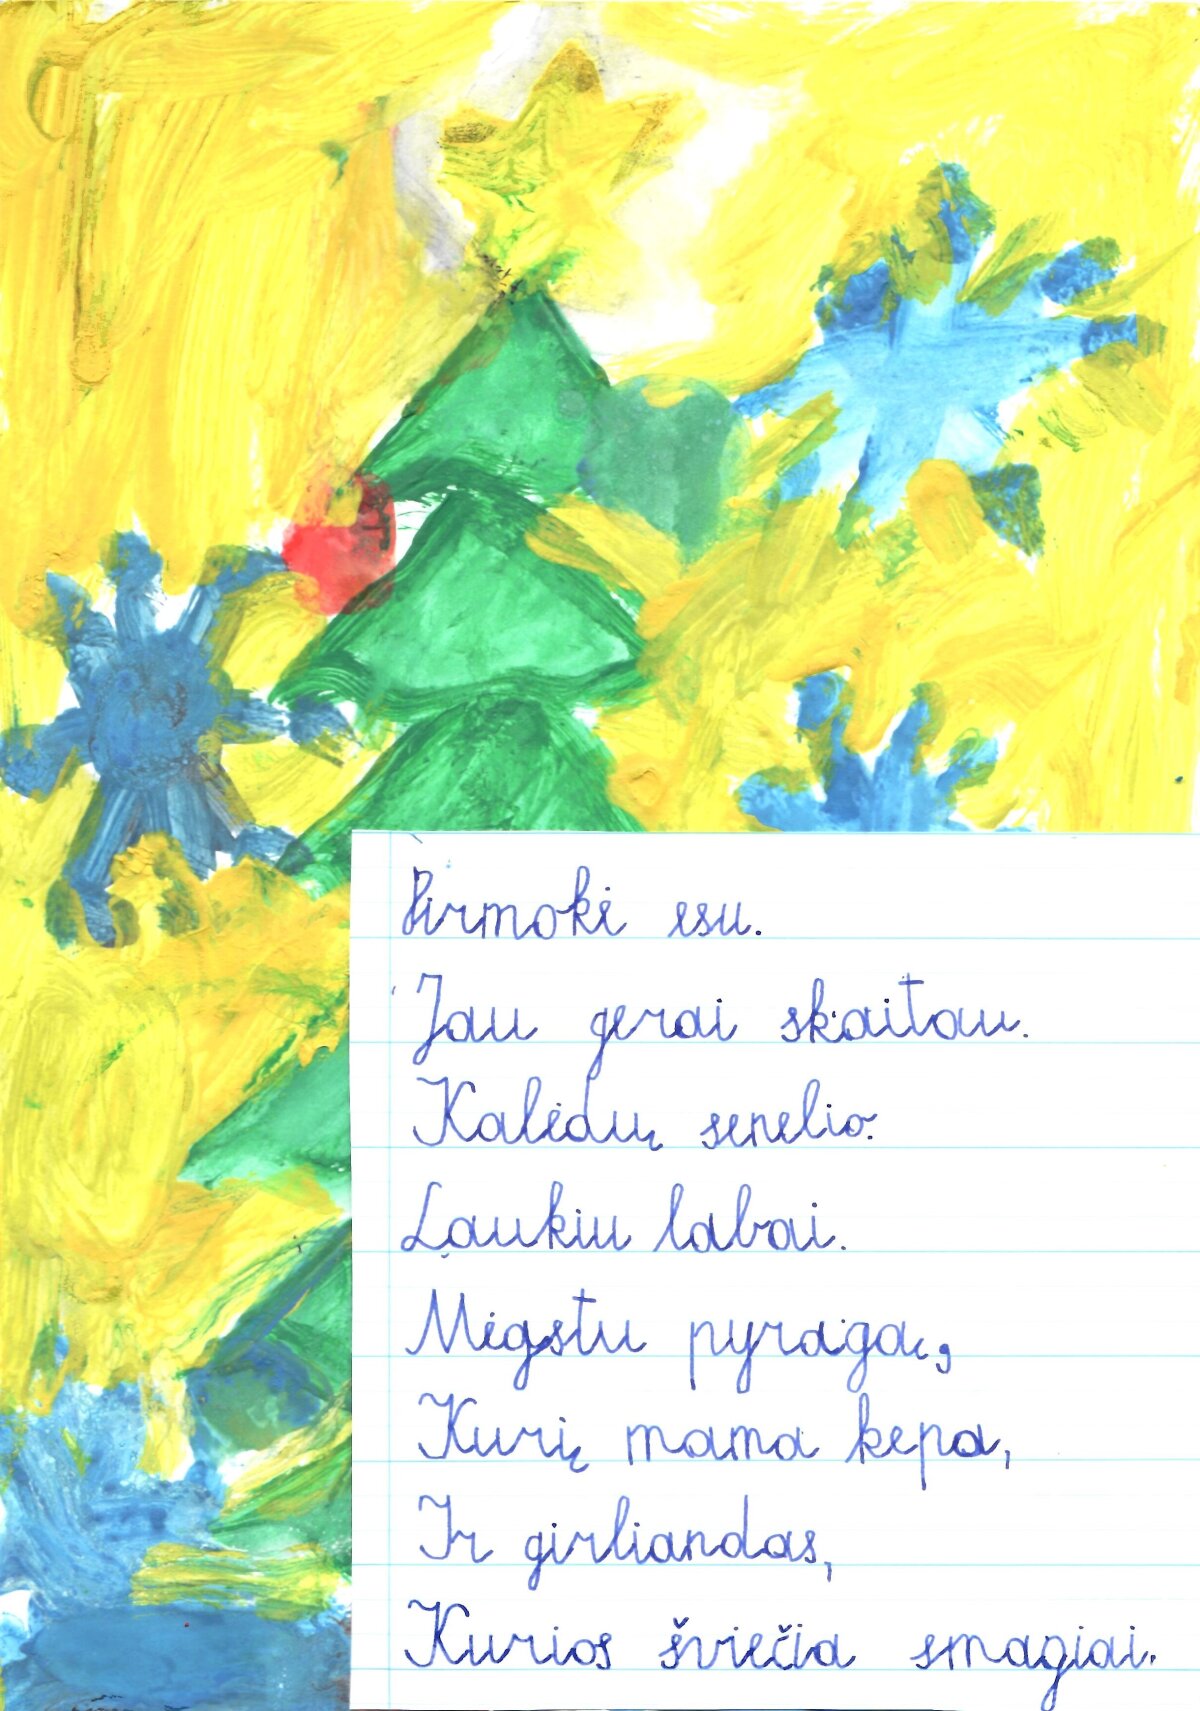 Pirmokė esu.
Jau gerai skaitau.
Kalėdų senelio.
Laukiu labai.
Mėgstu pyragą,
Kurį mama kepa,
Ir girliandas,
Kurios šviečia smagiai.